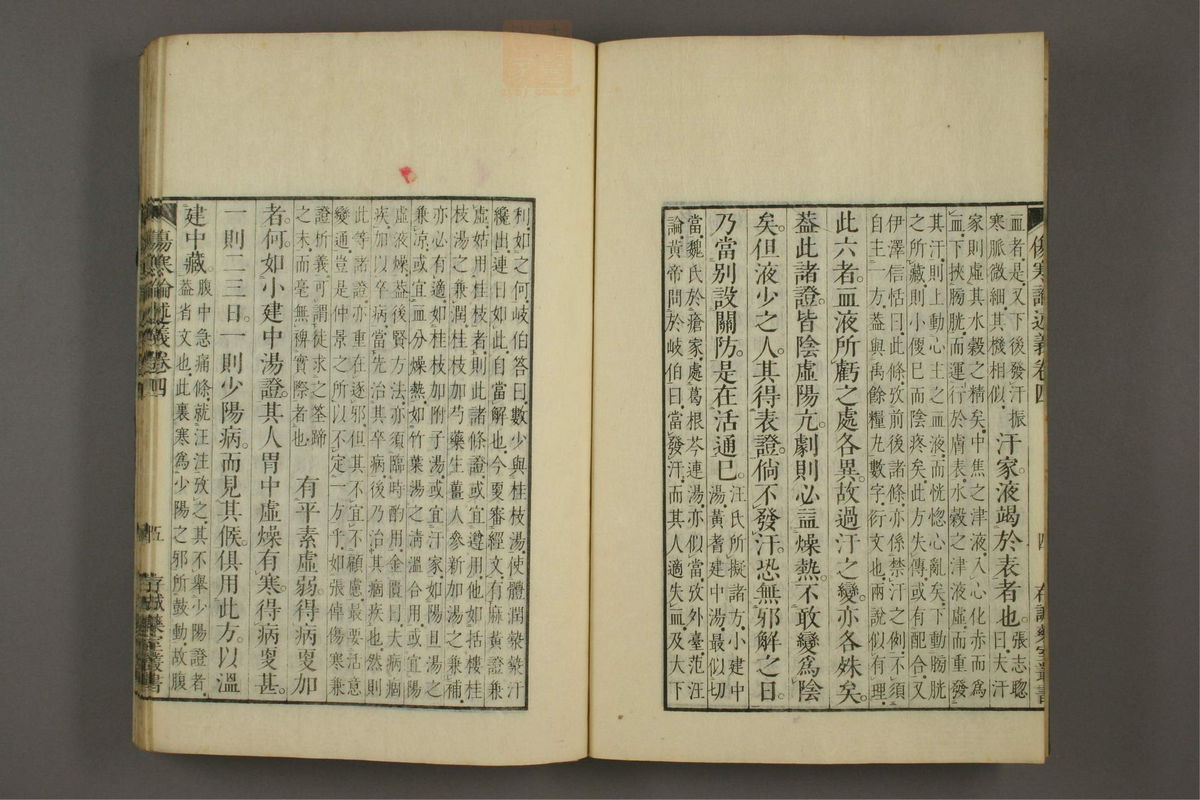 傷寒論述義卷四
四
存誠藥室叢書
血者是又下後發汗振
寒脈微細其機相似
汗家液竭於表者也
張志聰
曰夫汗
家則虛其水穀之精矣中焦之津液入心化赤而爲
血下挾膀胱而運行於膚表水穀之津液虛而重發
其汗則上動心主之血液而恍惚心亂矣下動膀胱
之所藏則小便已而陰疼矣此方失傳或有配合又
伊澤信恬曰此條攷前後諸條亦係禁汗之例不須
自主一方蓋與禹餘糧丸數字衍文也兩說似有理
此六者血液所虧之處各異故過汗之變亦各殊矣
蓋此諸證皆陰虛陽亢劇則必試燥熱不敢變爲陰
矣但液少之人其得表證倘不發汗恐無邪解之日
乃當別設關防是在活通已
汪氏所擬諸方小建中
湯黃耆建中湯最似切
當魏氏於瘡家處葛根芩連湯亦似當攷外臺范汪
論黃帝問於岐伯曰當發汗而其人適失血及大下
利如之何岐伯答曰數少與桂枝湯使體潤漐漐汗
纔出連日如此自當解也今更審經文有麻黃證兼
虛姑用桂枝者則此諸條證或宜遵用他如括樓桂
枝湯之兼潤桂枝加芍藥生薑人參新加湯之兼補
亦必有適如桂枝加附子湯或宜汗家如陽旦湯之
兼涼或宜血分燥熱如竹葉湯之淸溫合用或宜陽
虛液燥蓋後賢方法亦須臨時酌用金匱曰夫病痼
疾加以卒病當先治其卒病後乃治其痼疾也然則
此等諸證亦重在逐邪但其不宜不顧慮最要活意
變通豈是仲景之所以不定一方乎如張倬傷寒兼
證析義可謂徒求之筌蹄
之末而毫無裨實際者也
有平素虛弱得病更加
者何如小建中湯證其人胃中虛燥有寒得病更甚
一則二三日一則少陽病而見其候俱用此方以溫
建中藏
腹中急痛條就汪注攷之其不舉少陽證者
蓋省文也此裏寒爲少陽之邪所鼓動故腹
傷寒論述義卷四
五
存誠藥室叢書